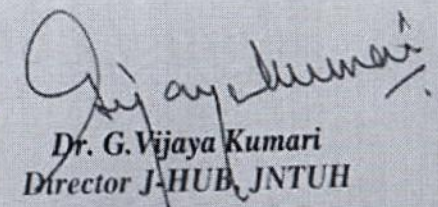 Gvijayakumari
Dr. G. Vijaya Kumari
Director J-HUB, JNTUH